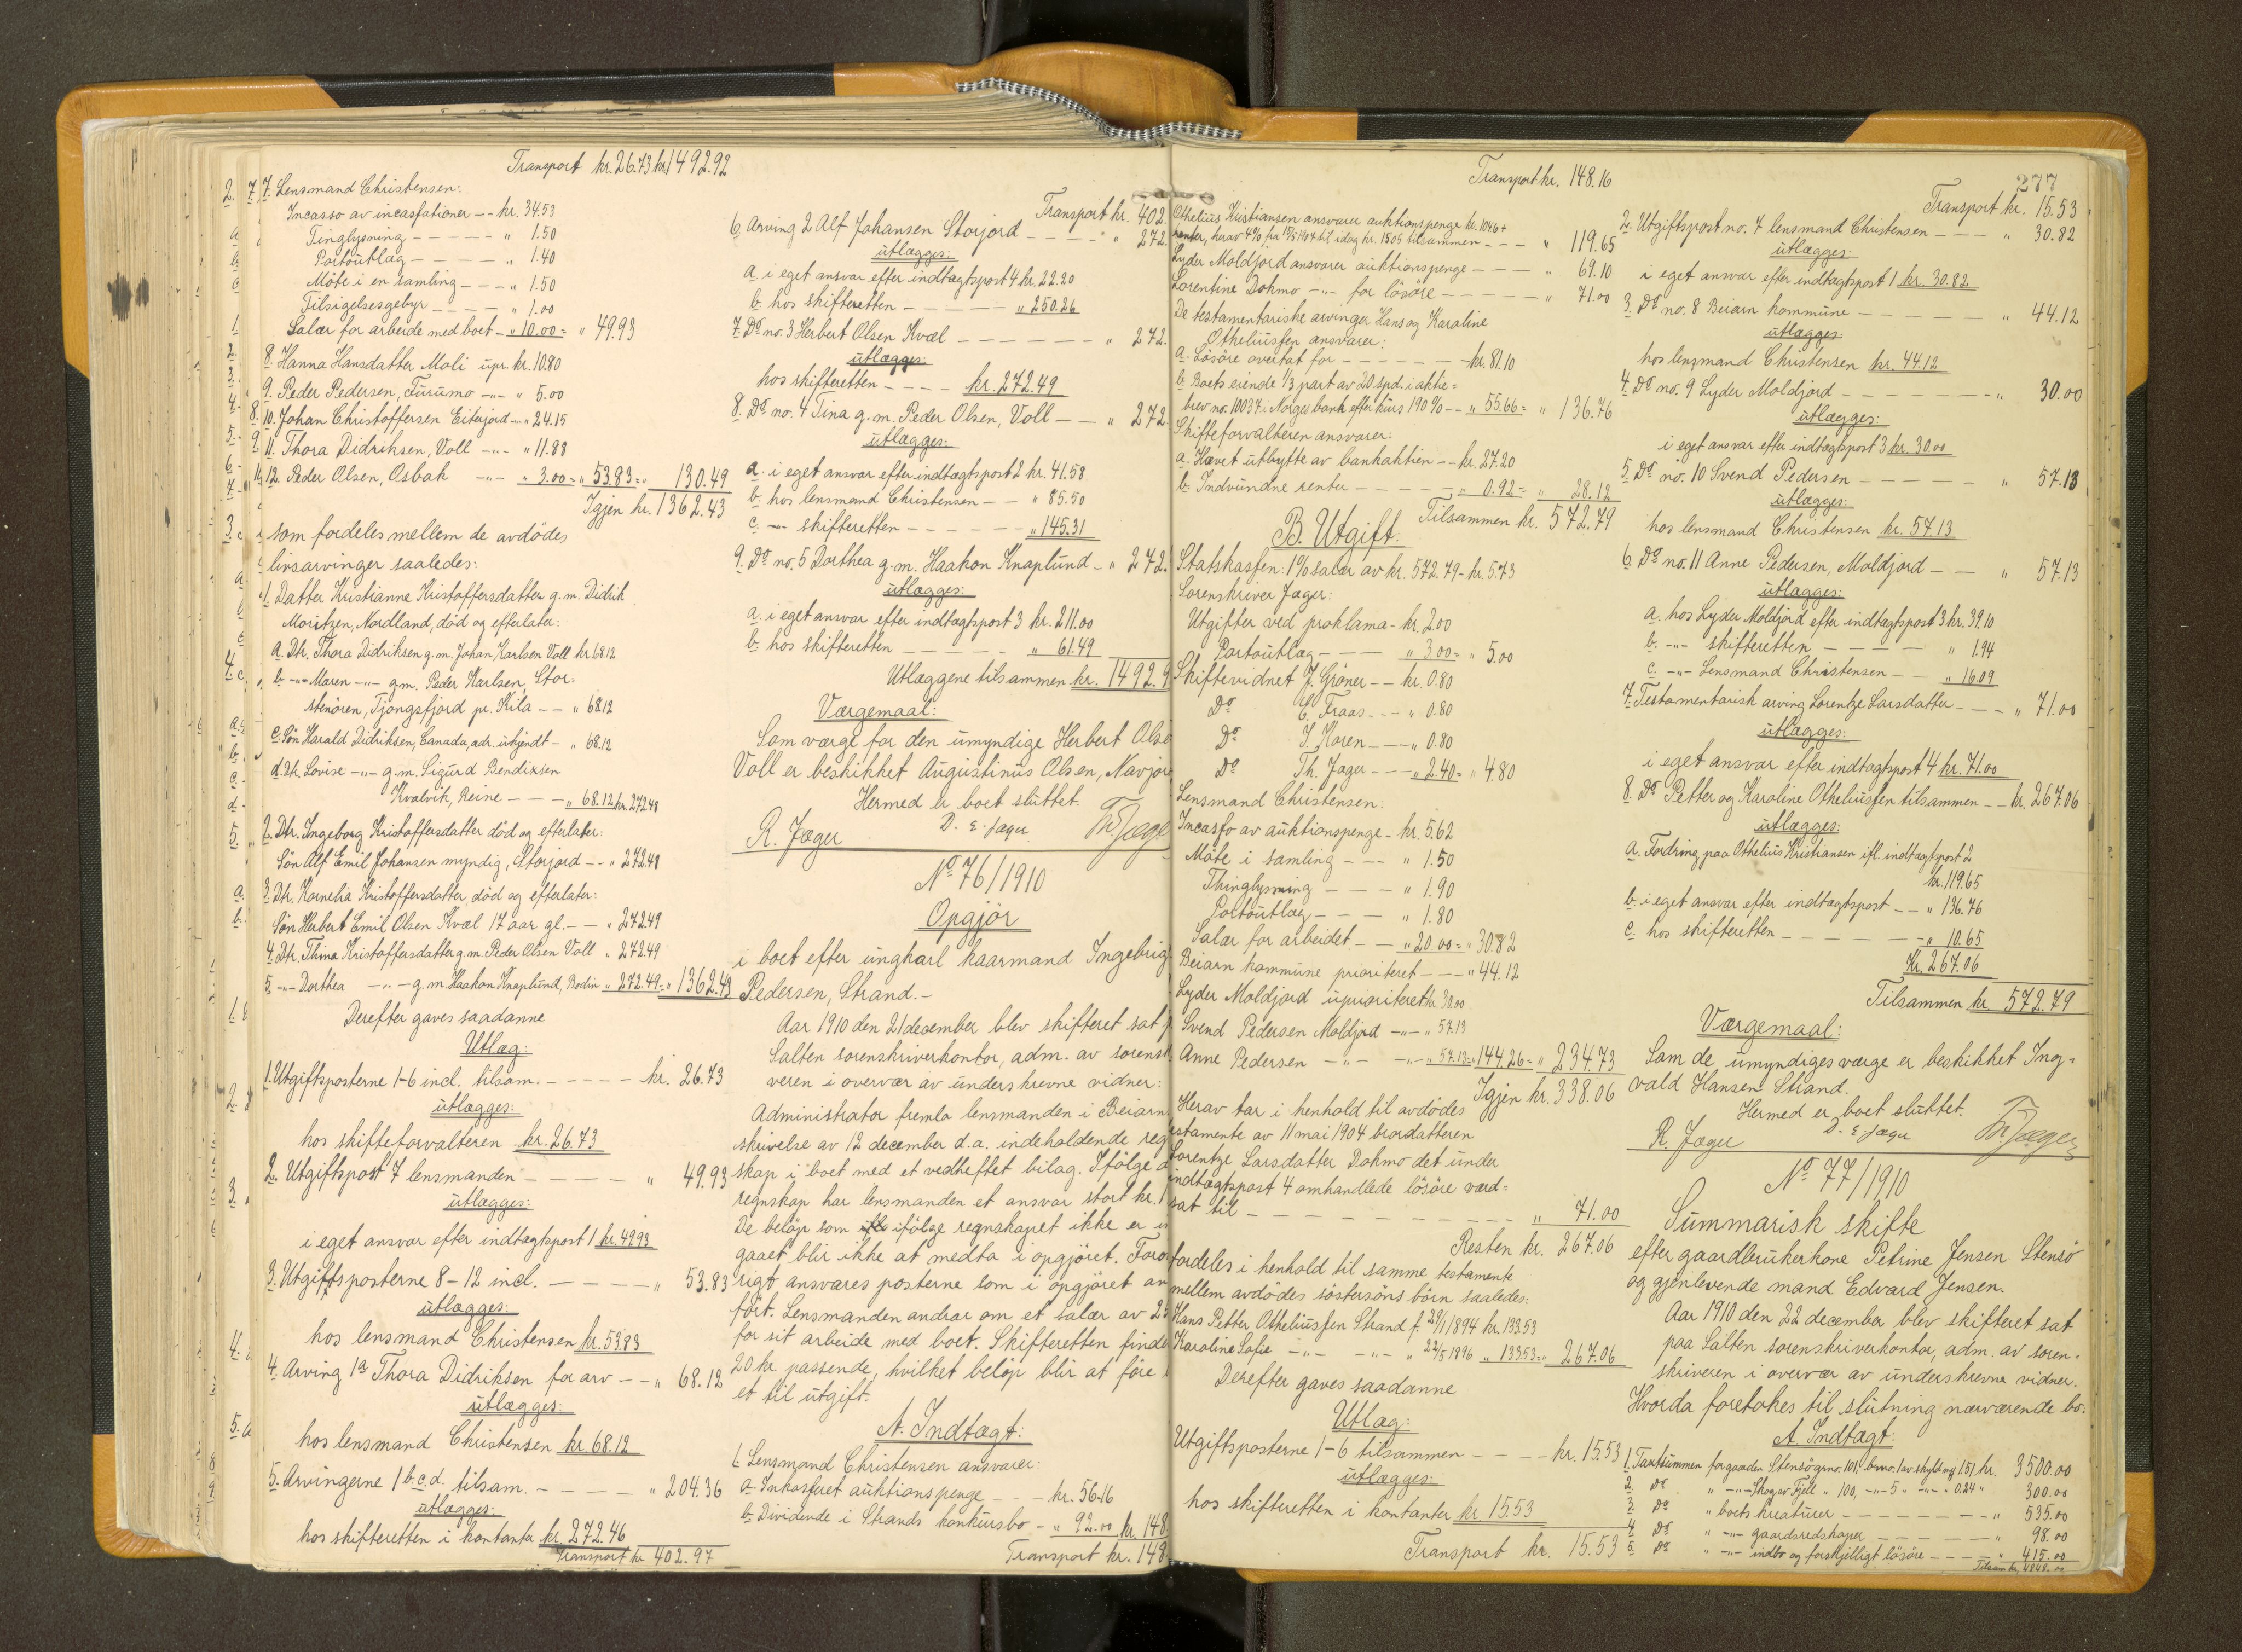 Transport kr. 26.73 kr. 1492.92
7. Lensmand Christensen:
Incasso av incassationer -- kr. 34.53
Tinglysning ----- " 1.50
Portoutlæg ----- " 1.40
Möte i en samling --- " 1.50
Tilsigelsesgebyr ---- " 1.00
Salær for arbeide med boet - " 10.00 = " 49.93
8. Hanna Hansdatter Moli upr. kr. 10.80
9. Peder Pedersen, Tuvumo -"- " 5.00
10. Johan Christoffersen Eiterjord -"- " 24.15
11. Thora Didriksen, Voll -"- " 11.88
12. Peder Olsen, Osbak -"- " 3.00 = " 53.83 = " 130.49
Igjen kr. 1362.43
som fordeles mellem de avdödes
livsarvinger saaledes:
1. Datter Kristianne Kristoffersdatter g.m. Didrik
Moritzen, Nordland, död og efterlater:
a. Dtr. Thora Didriksen g.m. Johan Karlsen Voll kr. 68.12
b. -"- Maren -"- g.m. Peder Karlsen, Stor-
stenören, Tjongsfjord pr. Kila -- " 68.12
c. Sön Harald Didriksen, Canada, adr. ukjendt - " 68.12
d. Dtr. Lovise -"- g.m. Sigurd Bendixsen
Kvalvik, Reine --- " 68.12 kr. 272.48
2. Dtr. Ingeborg Kristoffersdatter död og efterlater:
Sön Alf Emil Johansen myndig, Storjord -- " 272.48
3. Dtr. Kornelia Kristoffersdatter, död og efterlater:
Sön Herbert Emil Olsen Kvæl 17 aar gl. -- " 272.49
4. Dtr. Thina Kristoffersdatter g.m. Peder Olsen Voll " 272.49
5. -"- Dorthea -"- g.m. Haakon Knaplund, Bodin " 272.49 = " 1362.43
Derefter gaves saadanne
Utlæg:
1. Utgiftsposterne 1-6 incl. tilsam. ---- kr. 26.73
utlægges:
hos skifteforvalteren kr. 26.73
2. Utgiftspost 7 lensmanden ---- " 49.93
utlægges:
i eget ansvar efter indtægtspost 1 kr. 49.93
3. Utgiftsposterne 8-12 incl. ---- " 53.83
utlægges:
hos lensmand Christensen kr. 53.83
4. Arving 1a Thora Didriksen for arv -- " 68.12
utlægges:
hos lensmand Christensen kr. 68.12
5. Arvingerne 1 b.c.d. tilsam. ---- " 204.36
utlægges:
hos skifteretten i kontanter kr. 272.46
Transport kr. 402.97
Transport kr. 402.
6. Arving 2 Alf Johansen Storjord ---- " 272.
utlægges:
a. i eget ansvar efter indtægtspost 4 kr. 22.20
b. hos skifteretten ----- " 250.26
7. Do no. 3 Herbert Olsen Kvæl ------ " 272.
utlægges:
hos skifteretten ---- kr. 272.49
8. Do no. 4 Tina g.m. Peder Olsen, Voll -- " 272.
utlægges:
a. i eget ansvar efter indtægtspost 2 kr. 41.58
b. hos lensmand Christensen -- " 85.50
c. -"- skifteretten ----- " 145.31
9. Do no. 5 Dorthea g.m. Haakon Knaplund - " 272.
utlægges:
a. i eget ansvar efter indtægtspost 3 kr. 211.00
b. hos skifteretten ----- " 61.49
Utlæggene tilsammen kr. 1492.9
Værgemaal:
Som værge for den umyndige Herbert Olse
Voll er beskikket Augustinus Olsen, Navjor
Hermed er boet sluttet.
R. Jæger D. E. Jæger Th Jæge
No 76/1910
Opgjör
i boet efter ungkarl kaarmand Ingebrig
Pedersen, Strand.-
Aar 1910 den 21 december blev skifteret sat p
Salten sorenskriverkontor, adm. av sorensk
veren i overvær av underskrevne vidner:
Administrator fremla lensmanden i Beiarn
skrivelse av 12 december d.a. indeholdende reg
skap i boet med et vedheftet bilag. Ifölge d
regnskap har lensmanden et ansvar stort kr. 1
De belöp som ifölge regnskapet ikke er in
gaaet blir ikke at medta i opgjöret. Foro
rigt ansvares posterne som i opgjöret an
fört. Lensmanden andrar om et salær av 25
for sit arbeide med boet. Skifteretten finde
20 kr. passende, hvilket belöp blir at före
et til utgift.
A. Indtægt:
1. Lensmand Christensen ansvarer:
a. Inkasseret auktionspenge --- kr. 56.16
b. Dividende i Strands konkursbo - " 92.00 kr. 148
Transport kr. 148
277
Transport kr. 148.16
Othelius Kristiansen ansvarer auktionspenge kr. 104.6+
renter, herav 4% fra 15/5 1904 til idag kr. 15.05 tilsammen --- " 119.65
Lyder Moldjord ansvarer auktionspenge --- " 69.10
Lorentine Dokmo -"- for lösöre ----- " 71.00
De testamentariske arvinger Hans og Karoline
Otheliussen ansvarer:
a. Lösöre overtat for ------ kr. 81.10
b. Boets eiende 1/3 part av 20 spd. i aktie=
brev no. 10037 i Norges bank efter kurs 190% -- " 55.66 = " 136.76
Skifteforvalteren ansvarer:
a. Hævet utbytte av bankaktien -- kr. 27.20
b. Indvundne renter ----- " 0.92 = " 28.12
Tilsammen kr. 572.79
B. Utgift:
Statskassen: 1% salær av kr. 572.79 - kr. 5.73
Sorenskriver Jæger:
Utgifter ved proklama - kr. 2.00
Portoutlæg --- " 3.00 = " 5.00
Skiftevidnet J. Gröner -- kr. 0.80
Do C. Fraas --- " 0.80
Do J. Koren --- " 0.80
Do Th. Jæger --- " 2.40 = " 4.80
Lensmand Christensen:
Incasso av auktionspenge - kr. 5.62
Möte i samling --- " 1.50
Thinglysning --- " 1.90
Portoutlæg --- " 1.80
Salær for arbeidet -- " 20.00 = " 30.82
Beiarn kommune prioriteret --- " 44.12
Lyder Moldjord uprioriteret kr. 30.00
Svend Pedersen Moldjord -"- " 57.13
Anne Pedersen -"- -"- " 57.13 = " 144.26 = " 234.73
Igjen kr. 338.06
Herav tar i henhold til avdödes
testamente av 11 mai 1904 brordatteren
Lorentze Larsdatter Dokmo det under
indtægtspost 4 omhandlede lösöre værd=
sat til --------- " 71.00
Resten kr. 267.06
fordeles i henhold til samme testamente
mellem avdödes söstersöns börn saaledes:
Hans Petter Otheliussen Strand f. 29/1 1894 kr. 133.53
Karoline Sofie -"- -"- " 22/5 1896 " 133.53 = " 267.06
Derefter gaves saadanne
Utlæg:
Utgiftsposterne 1-6 tilsammen --- kr. 15.53
utlægges:
hos skifteretten i kontanter kr. 15.53
Transport kr. 15.53
Transport kr. 15.53
2. Utgiftspost no. 7 lensmand Christensen --- " 30.82
utlægges:
i eget ansvar efter indtægtspost 1 kr. 30.82
3. Do no. 8 Beiarn kommune ----- " 44.12
utlægges:
hos lensmand Christensen kr. 44.12
4. Do no. 9 Lyder Moldjord ----- " 30.00
utlægges:
i eget ansvar efter indtægtspost 3 kr. 30.00
5. Do no. 10 Svend Pedersen ----- " 57.13
utlægges:
hos lensmand Christensen kr. 57.13
6. Do no. 11 Anne Pedersen, Moldjord -- " 57.13
utlægges:
a. hos Lyder Moldjord efter indtægtspost 3 kr. 39.10
b. -"- skifteretten ---- " 1.94
c. -"- Lensmand Christensen -- " 16.09
7. Testamentarisk arving Lorentze Larsdatter --- " 71.00
utlægges:
i eget ansvar efter indtægtspost 4 kr. 71.00
8. Do Petter og Karoline Otheliussen tilsammen -- kr. 267.06
utlægges:
a. Fordring paa Othelius Kristiansen ifl. indtægtspost 2
kr. 119.65
b. i eget ansvar efter indtægtspost -- " 136.76
c. hos skifteretten ------ " 10.65
Kr. 267.06
Tilsammen kr. 572.79
Værgemaal:
Som de umyndiges værge er beskikket Ing=
vald Hansen Strand.
Hermed er boet sluttet.
R. Jæger D. E. Jæger Th Jæger
No 77/1910
Summarisk skifte
efter gaardbrukerkone Petrine Jensen Stensö
og gjenlevende mand Edvard Jensen.
Aar 1910 den 22 december blev skifteret sat
paa Salten sorenskriverkontor, adm. av soren-
skriveren i overvær av underskrevne vidner.
Hvorda foretokes til slutning nærværende bo:
A. Indtægt:
1. Taxtsummen for gaarden Stensö grno. 101, brno. 1 av skyld mg 1.51 kr. 3500.00
2. Do " -"- Skogav Fjell " 100, -"- 5 " -"- " 0.24 " 300.00
3. Do " boets kreaturer ------- " 535.00
4. Do " -"- gaardsredskaper ----- " 98.00
5. Do " -"- indbo og forskjelligt lösöre ---- " 415.00
Tilsam. kr. 4848.00